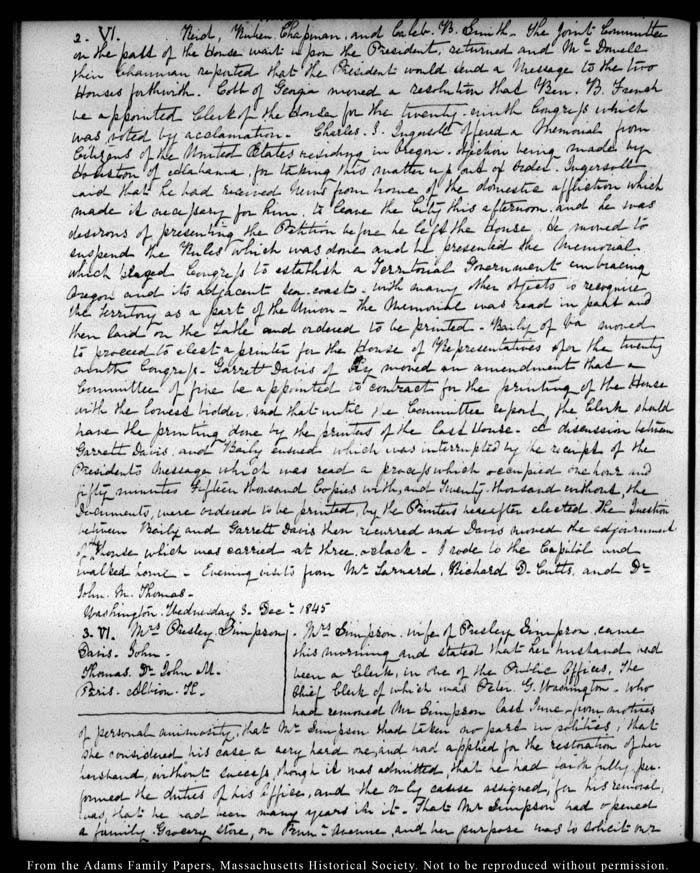 2. VI. Reid, Ruben, Chapman, and Caleb. B. Smith. The Joint Committee
on the part of the House wait upon the President, returned and Mc. Dowell
their Chairman reported that the President would send a Message to the two
Houses forthwith. Cobb of Georgia moved a resolution that Ben. B. French
be appointed Clerk of the House for the twenty-ninth Congress which
was voted by acclamation. Charles. J. Ingersoll offered a Memorial from
Citizens of the United States residing in Oregon. objection being made by
Houston of Alabama, for taking this matter up out of order. Ingersoll
said that he had received news from home of the domestic affliction which
made it necessary for him, to leave the City this afternoon, and he was
desirous of presenting the Petition before he left the House. he moved to
suspend the Rules which was done and he presented the Memorial.
which prayed Congress to establish a Territorial Government embracing
Oregon and its adjacent sea-coasts. with many other objects to recognise
the Territory as a part of the Union. The Memorial was read in part and
then laid on the Table and ordered to be printed. Baily of Va moved
to proceed to elect a printer for the House of Representatives for the twenty
ninth Congress. Garrett Davis of Ky moved an amendment that a
Committee of five be appointed to contract for the printing of the House
with the lowest bidder, and that until the Committee report, the Clerk should
have the printing done by the printers of the last House. A discussion between
Garrett Davis, and Baily ensued which was interrupted by the receipt of the
Presidents Message which was read a process which occupied one hour and
fifty minutes Fifteen thousand Copies with, and Twenty-thousand without, the
Documents, were ordered to be printed, by the Printers hereafter elected. The Question
between Baily and Garrett Davis then recurred and Davis moved the adjournment
of the House which was carried at three, o.clock. I rode to the Capitol and
walked home. Evening visits from Mr Larnard, Richard D. Cutts, and Dr
John. M. Thomas.
Washington. Wednesday 3. Decr. 1845
3. VI. Mrs Presley Simpson
Davis. John.
Thomas. Dr John M.
Paris. Albion. K.
Mrs Simpson. wife of Presley Simpson, came
this morning and stated that her husband, had
been a Clerk, in one of the Public Offices, The
Chief Clerk of which was Peter. G. Washington. who
had removed Mr Simpson last June from motives
of personal animosity, that Mr Simpson had taken no part in politics, that
she considered his case a very hard one, and had applied for the restoration of her
husband, without success, though it was admitted, that he had faithfully per-
formed the duties of his Office, and the only cause assigned, for his removal,
was, that he had been many years in it. That Mr Simpson had opened
a family Grocery store, on Penna. Avenue, and her purpose was to solicit our
From the Adams Family Papers, Massachusetts Historical Society. Not to be reproduced without permission.